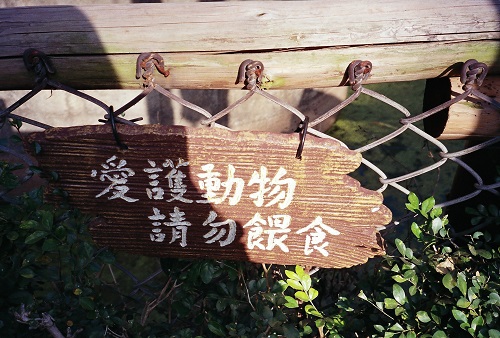 愛護動物
請勿餵食